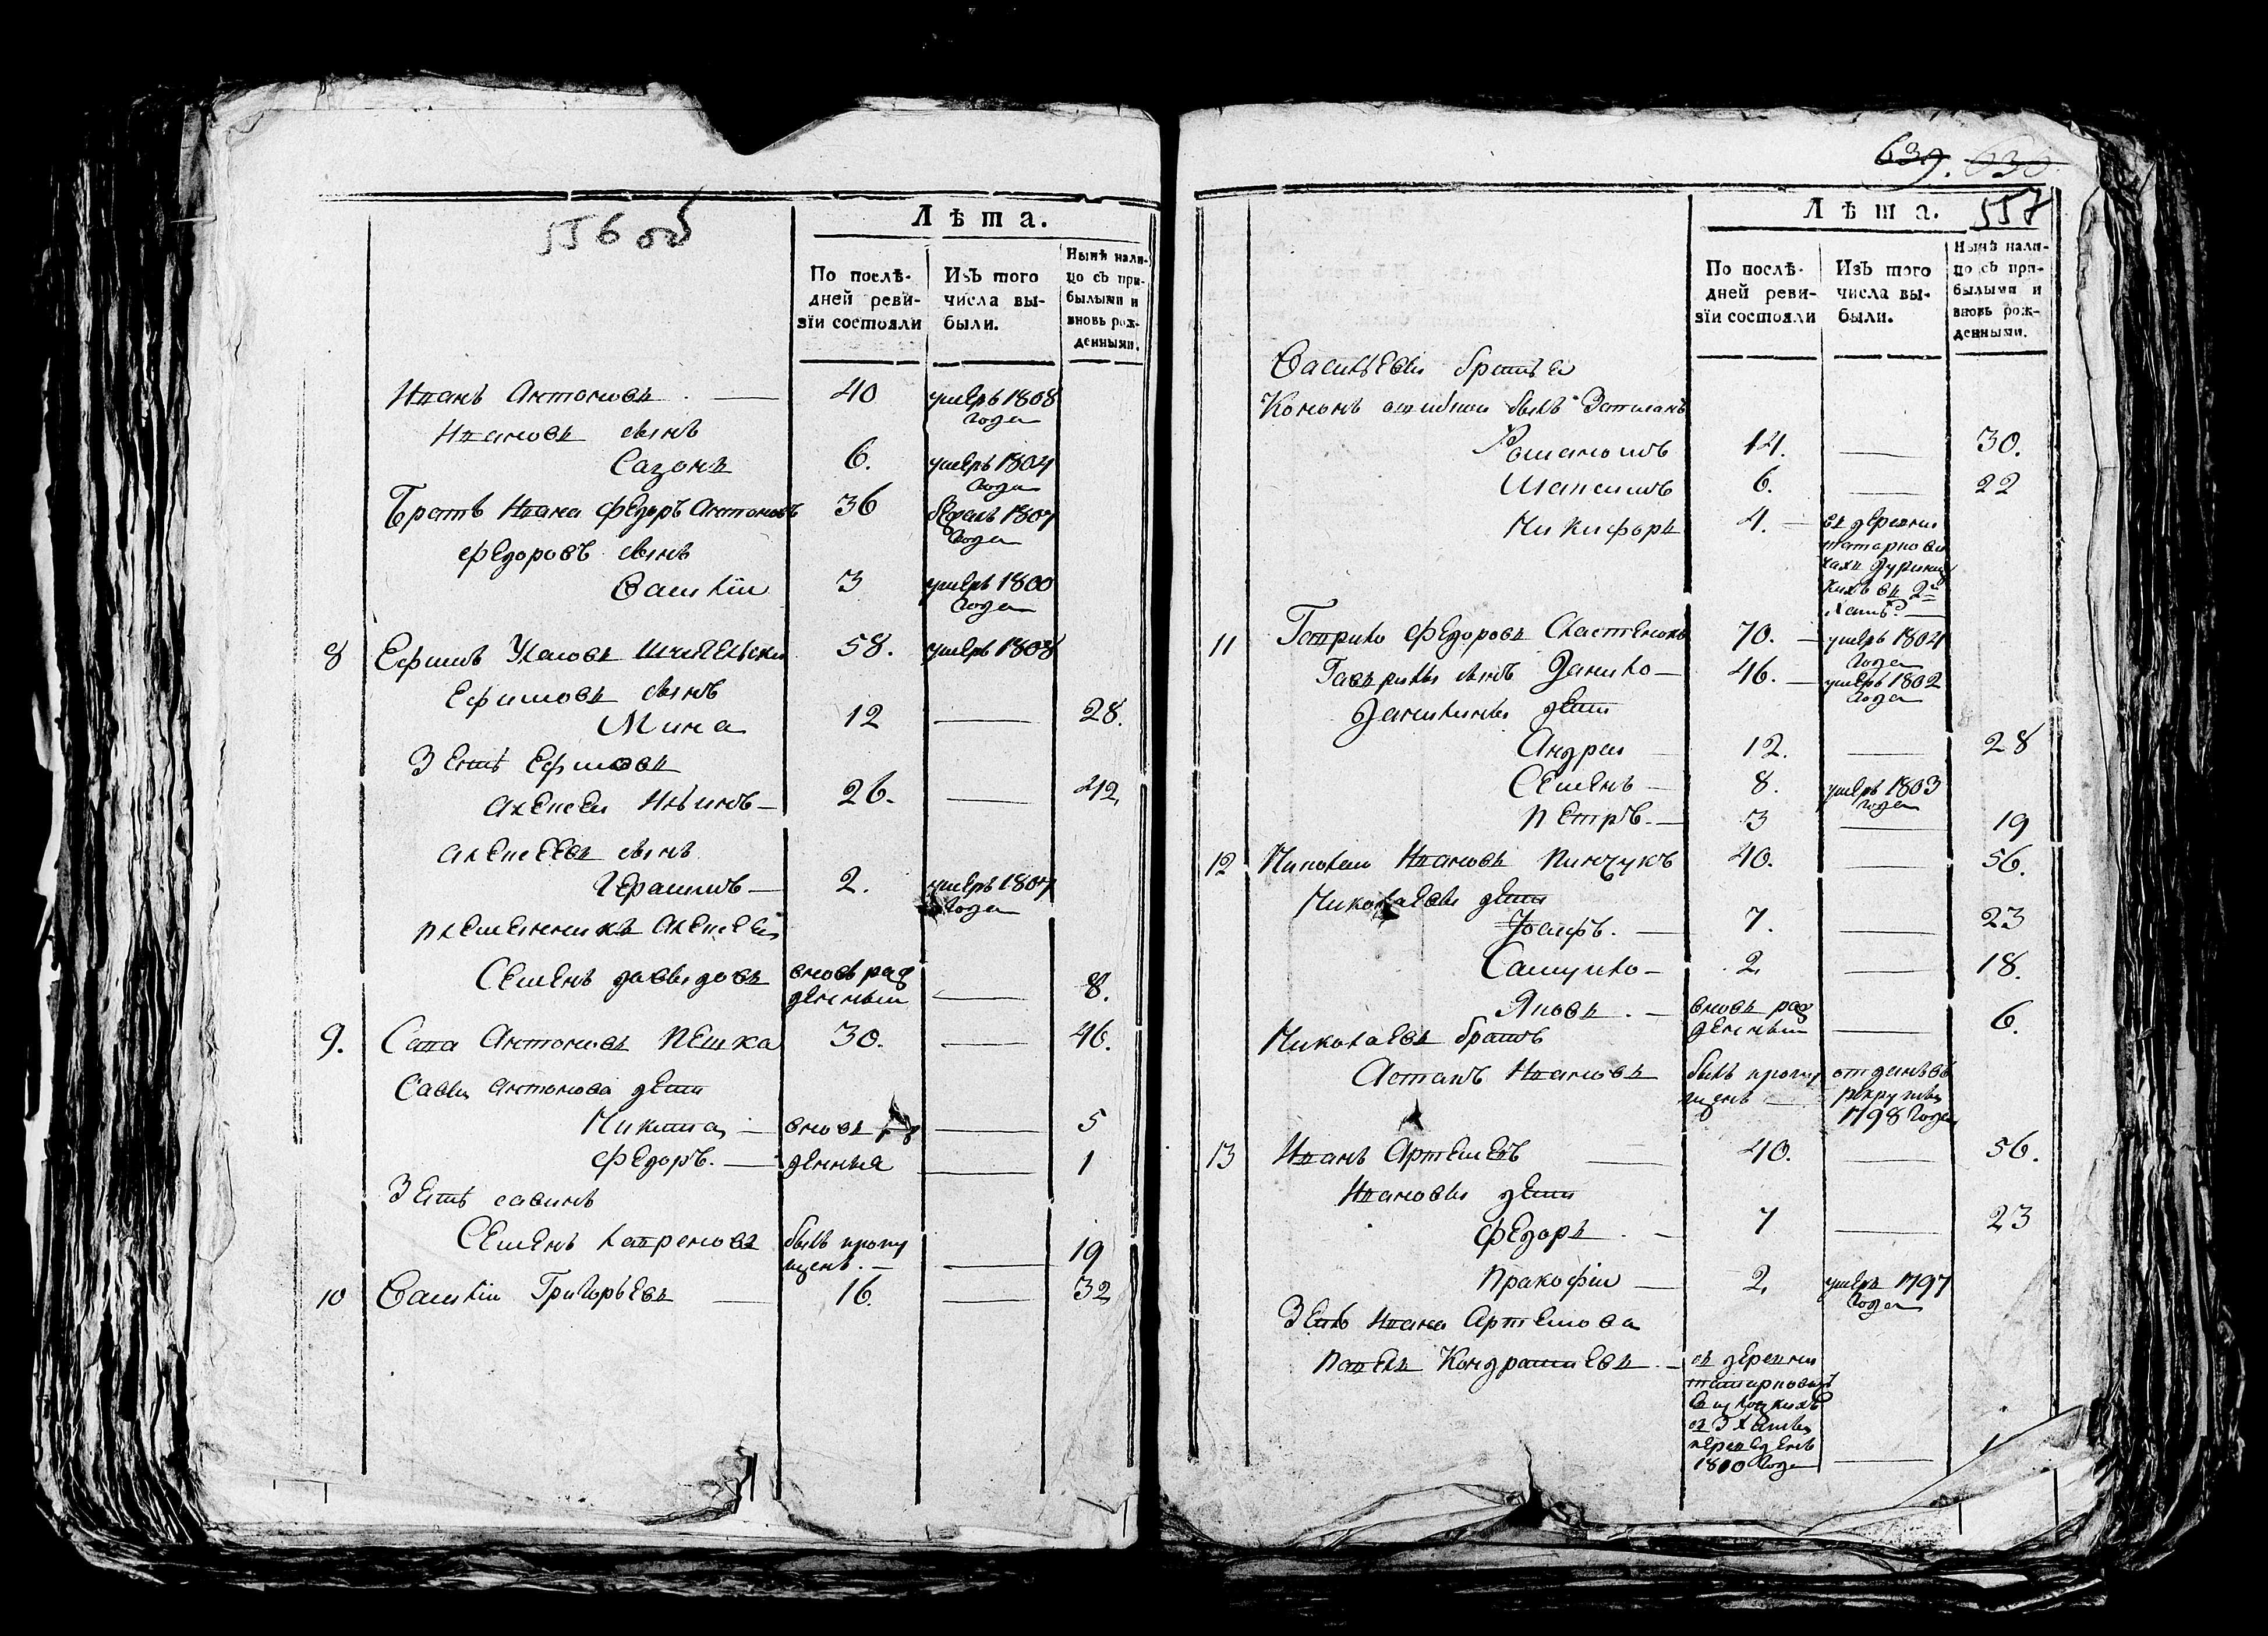 556 об
Лѣта.
По послѣ-
дней реви-
зіи состояли
Изъ того
числа вы-
были.
Нынѣ нали-
цо съ при-
былыми и
вновь рож-
денными.
Иванъ Антоновъ . — 40 умеръ 1808
года
Ивановъ сынъ
Сазонъ 6. умеръ 1804
года
Братъ Ивана Федоръ Антоновъ 36 1807
года
Федоровъ сынъ
Василіи 3 умеръ 1800
года
8 Ефимъ 58. умеръ 1808
Ефимовъ сынъ
Мина 12 — 28.
Зеть Ефимовъ
Алексеи Ильинъ — 26. — 42
Алексеевъ сынъ
Герасимъ — 2. умеръ 1807
года
племенникъ Алексея
Семенъ Давыдовъ вновь раж
денныи — 8.
9. Сава Антоновъ Пешка 30. — 46.
Савы Антонова дети
Никита — вновь — 5
Федоръ. — денныя — 1
Зеть савинъ
Семенъ Лавреновъ былъ пропу
щенъ. — — 19
10 Василіи Григорьевъ — 16. — 32
639. 630
557
Лѣта.
По послѣ-
дней реви-
зіи состояли
Изъ того
числа вы-
были.
Нынѣ нали-
цо съ при-
былыми и
вновь рож-
денными.
Васильевы братья
Кононъ ошибкои былъ Записанъ
Романомъ 14. — 30.
Максимъ 6. — 22
Никифоръ 4. — въ деревни
въ 2й
11 Гаврило Федоровъ 70. — умеръ 1804
года
Гаврилы сынъ Данило — 46. — умеръ 1802
года
Данилины дети
Андреи — 12. — 28
Семенъ — 8. умеръ 1803
года
Петръ. — 3 — 19
12 Николаи Ивановъ Пинчукъ 40. — 56.
Николаевы дети
Іосифъ. — 7. — 23
Самуило — 2 — 18.
Яковъ. — вновь раж
денныи — 6.
Николаевъ братъ
Астапъ Ивановъ былъ пропу
щенъ — отданъ въ
рекруты
1798 года
13 Иванъ Артемевъ — 40. — 56.
Ивановы дети
Федоръ . — 7 — 23
Пракофіи — 2 умеръ 1797
года
Зеть Ивана Артемова
Павелъ Кондратиевъ. — въ деревни
переведенъ
1810 года —